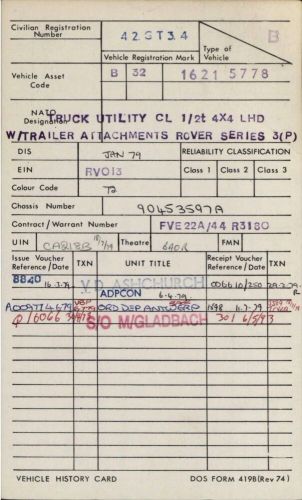 Civilian Registration Number
42 GT 34
Type of Vehicle
B
Vehicle Registration Mark
Vehicle Asset Code
B 32 1621 5778
NATO Designation
TRUCK UTILITY CL 1/2t 4X4 LHD
W/TRAILER ATTACHMENTS ROVER SERIES 3(P)
DIS JAN 79 RELIABILITY CLASSIFICATION
EIN RV013 Class 1 Class 2 Class 3
Colour Code 72
Chassis Number 90453597A
Contract/Warrant Number FVE 22A/44 R3180
UIN Theatre BAOR FMN
Issue Voucher Reference/Date TXN UNIT TITLE Receipt Voucher Reference/Date TXN
8840 16.3.79 V.D. ASHCHURCH
ADPCON 6.4.79
ORD DEP ANTWERP
S/O M/GLADBACH 301 6/5/93
VEHICLE HISTORY CARD DOS FORM 419B (Rev 74)